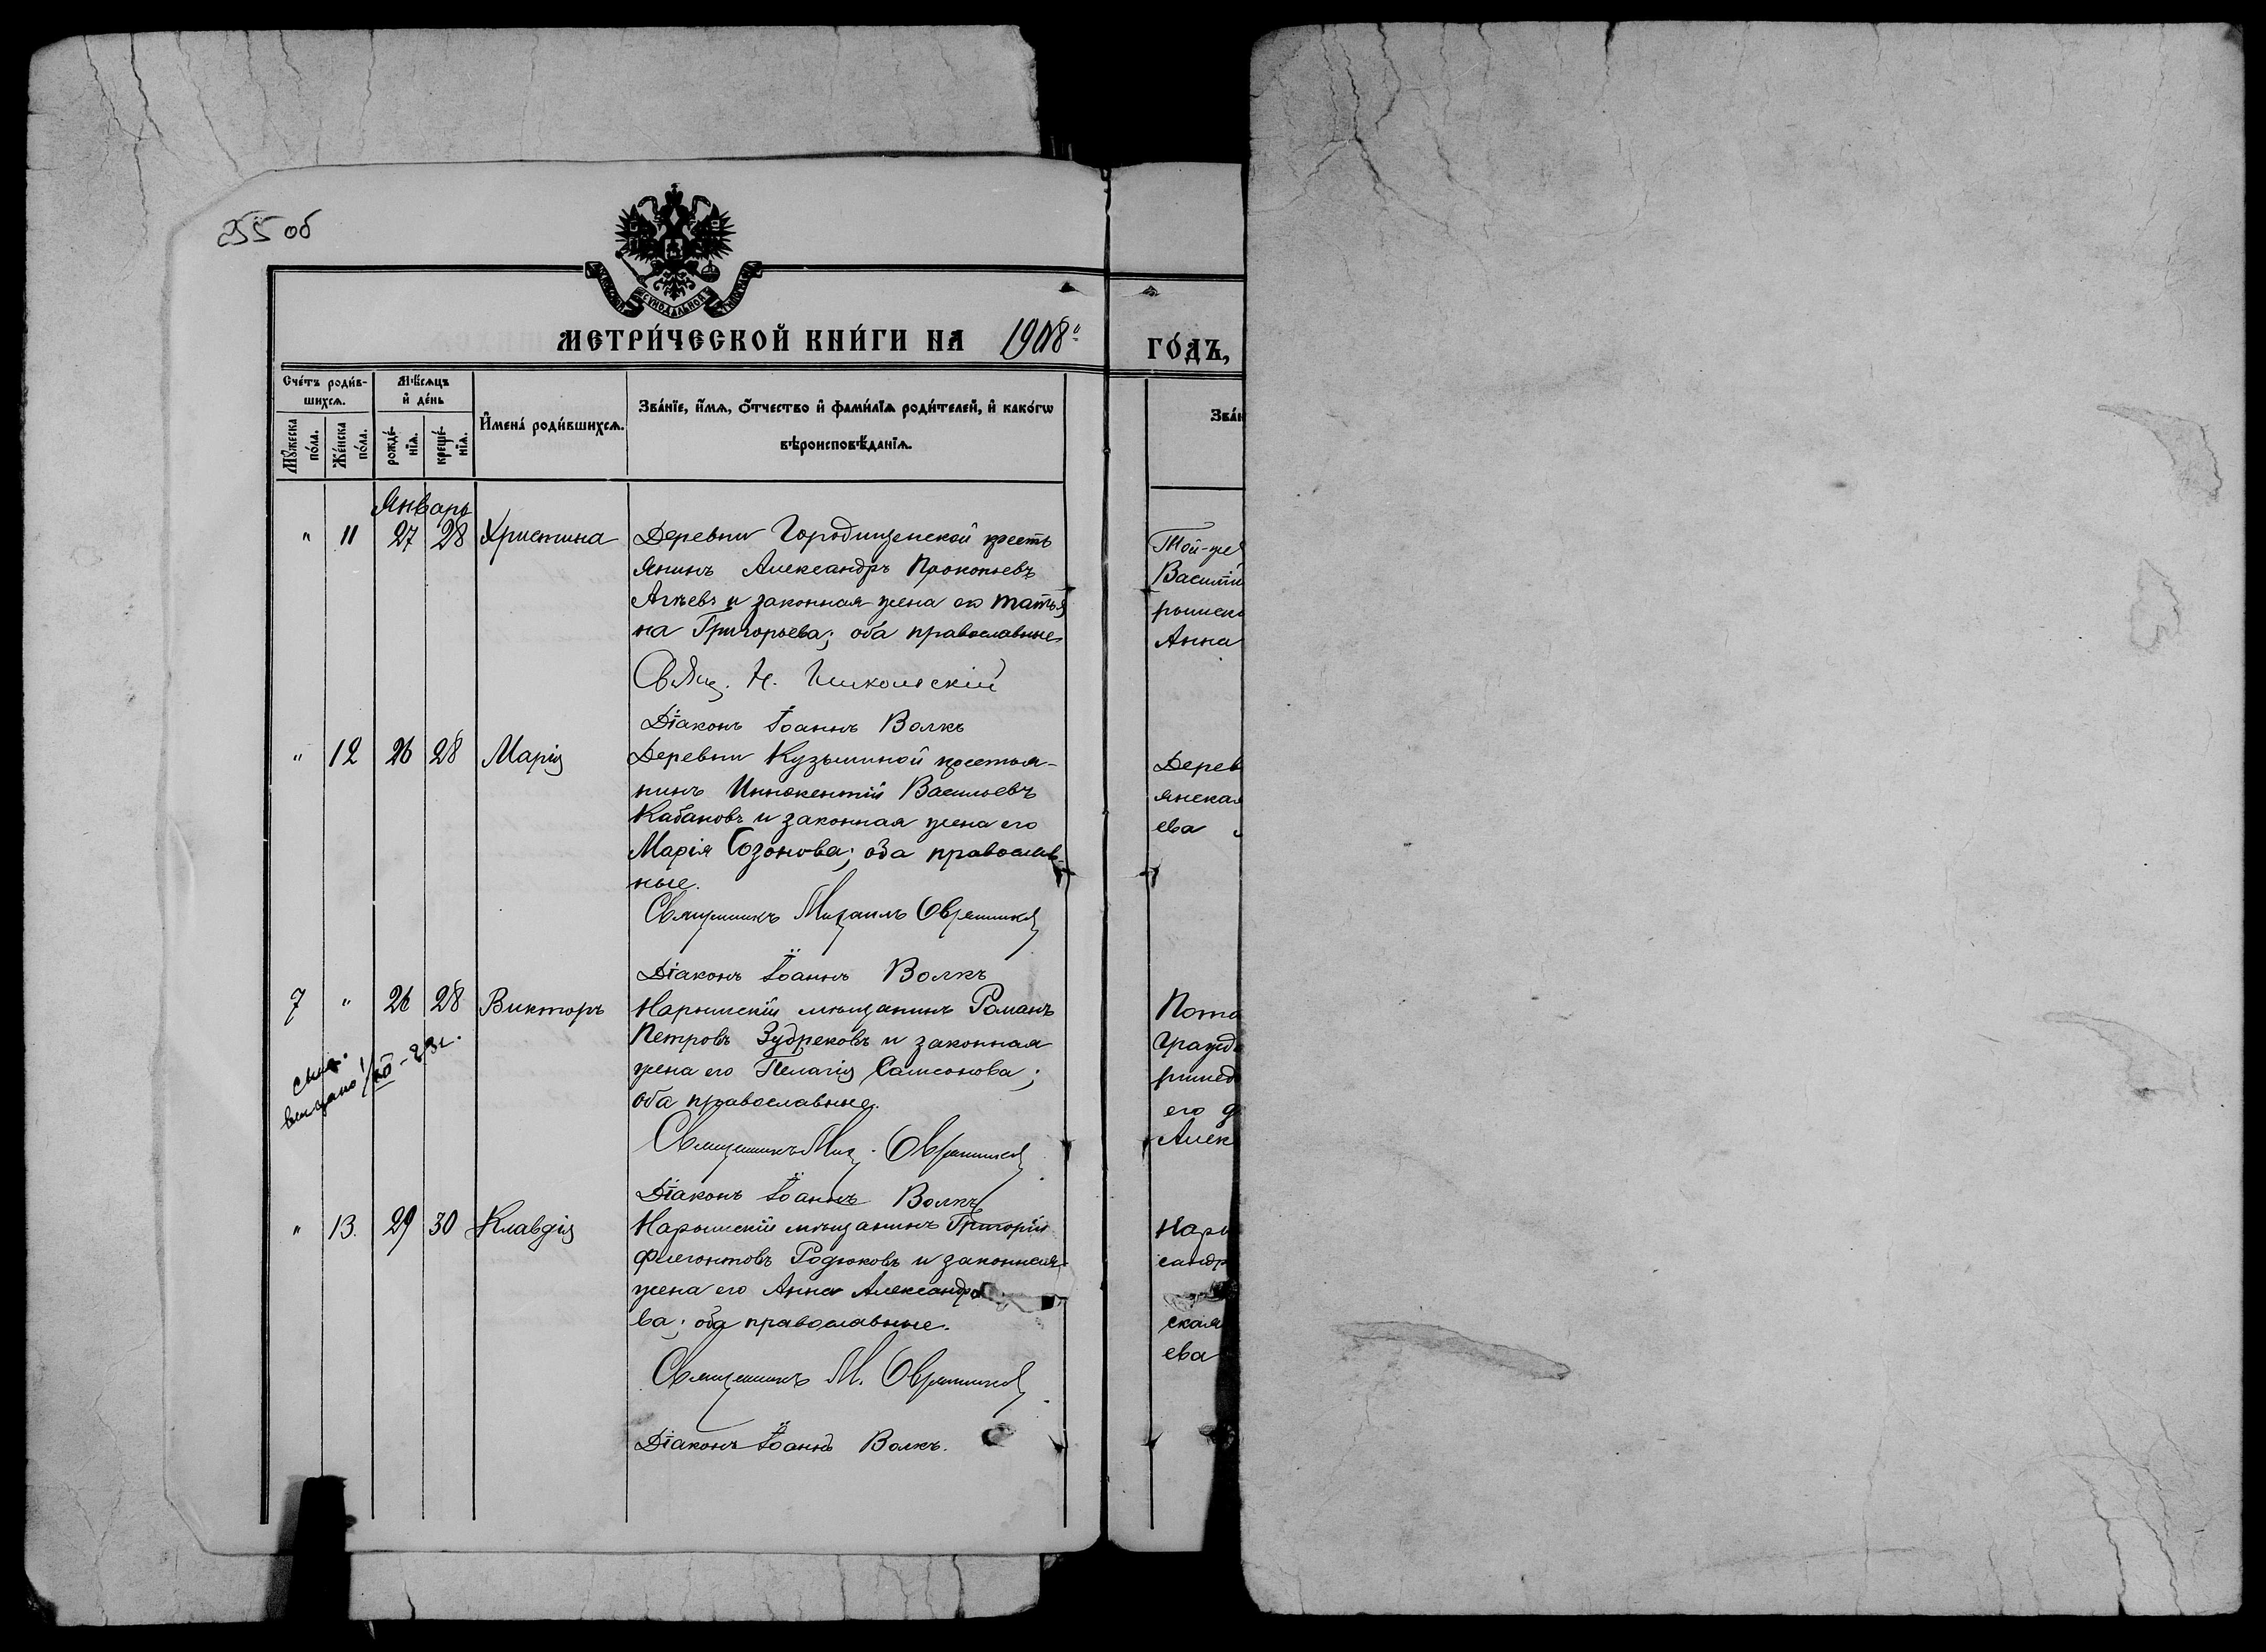 255 об
СѴНОДАЛЬНОЙ
МЕТРИ́ЧЕСКОЙ КНИ́ГИ НА 1908 ГО́ДЪ,
Сче́тъ роди́в-
шихсѧ.
Мꙋ́жеска
по́ла.
Же́нска
по́ла.
Мѣ́сѧцъ
и҆ де́нь
рожде́-
нїѧ.
креще́-
нїѧ.
И҆мена̀ роди́вшихсѧ.
Зва́нїе, и҆́мѧ, ѻ҆́тчество и҆ фами́лїѧ роди́телей, и҆ како́гѡ
вѣроисповѣ́данїѧ.
Зва́н
Январь
" 11 27 28 Христина Деревни Городищенской кресть
янинъ Александръ Прокопьевъ
и законная жена его Татья
на Григорьева; оба православные
Свящ. Н. Никольскій
Діаконъ Іоаннъ Волкъ
" 12 26 28 Марія Деревни Кузьминой крестья-
нинъ Иннокентій Васильевъ
Кабановъ и законная жена его
Марія Созонова; оба православ-
ные.
Священникъ Михаилъ
Діаконъ Іоаннъ Волкъ
7 " 26 28 Викторъ Нарымскій мѣщанинъ Романъ
Петровъ Зубрековъ и законная
жена его Пелагія Самсонова;
оба православные.
Священникъ Мих.
Діаконъ Іоаннъ Волкъ
" 13. 29 30 Клавдія Нарымскій мѣщанинъ Григорій
Флегонтовъ Родюковъ и законная
жена его Анна Александро
ва; оба православные.
Священникъ М.
Діаконъ Іоаннъ Волкъ.
Той-же
Василій
Анна
Дерев
янская
ева
Пота
Гражда
его д
Алек
Нары
сандр
ская
ева